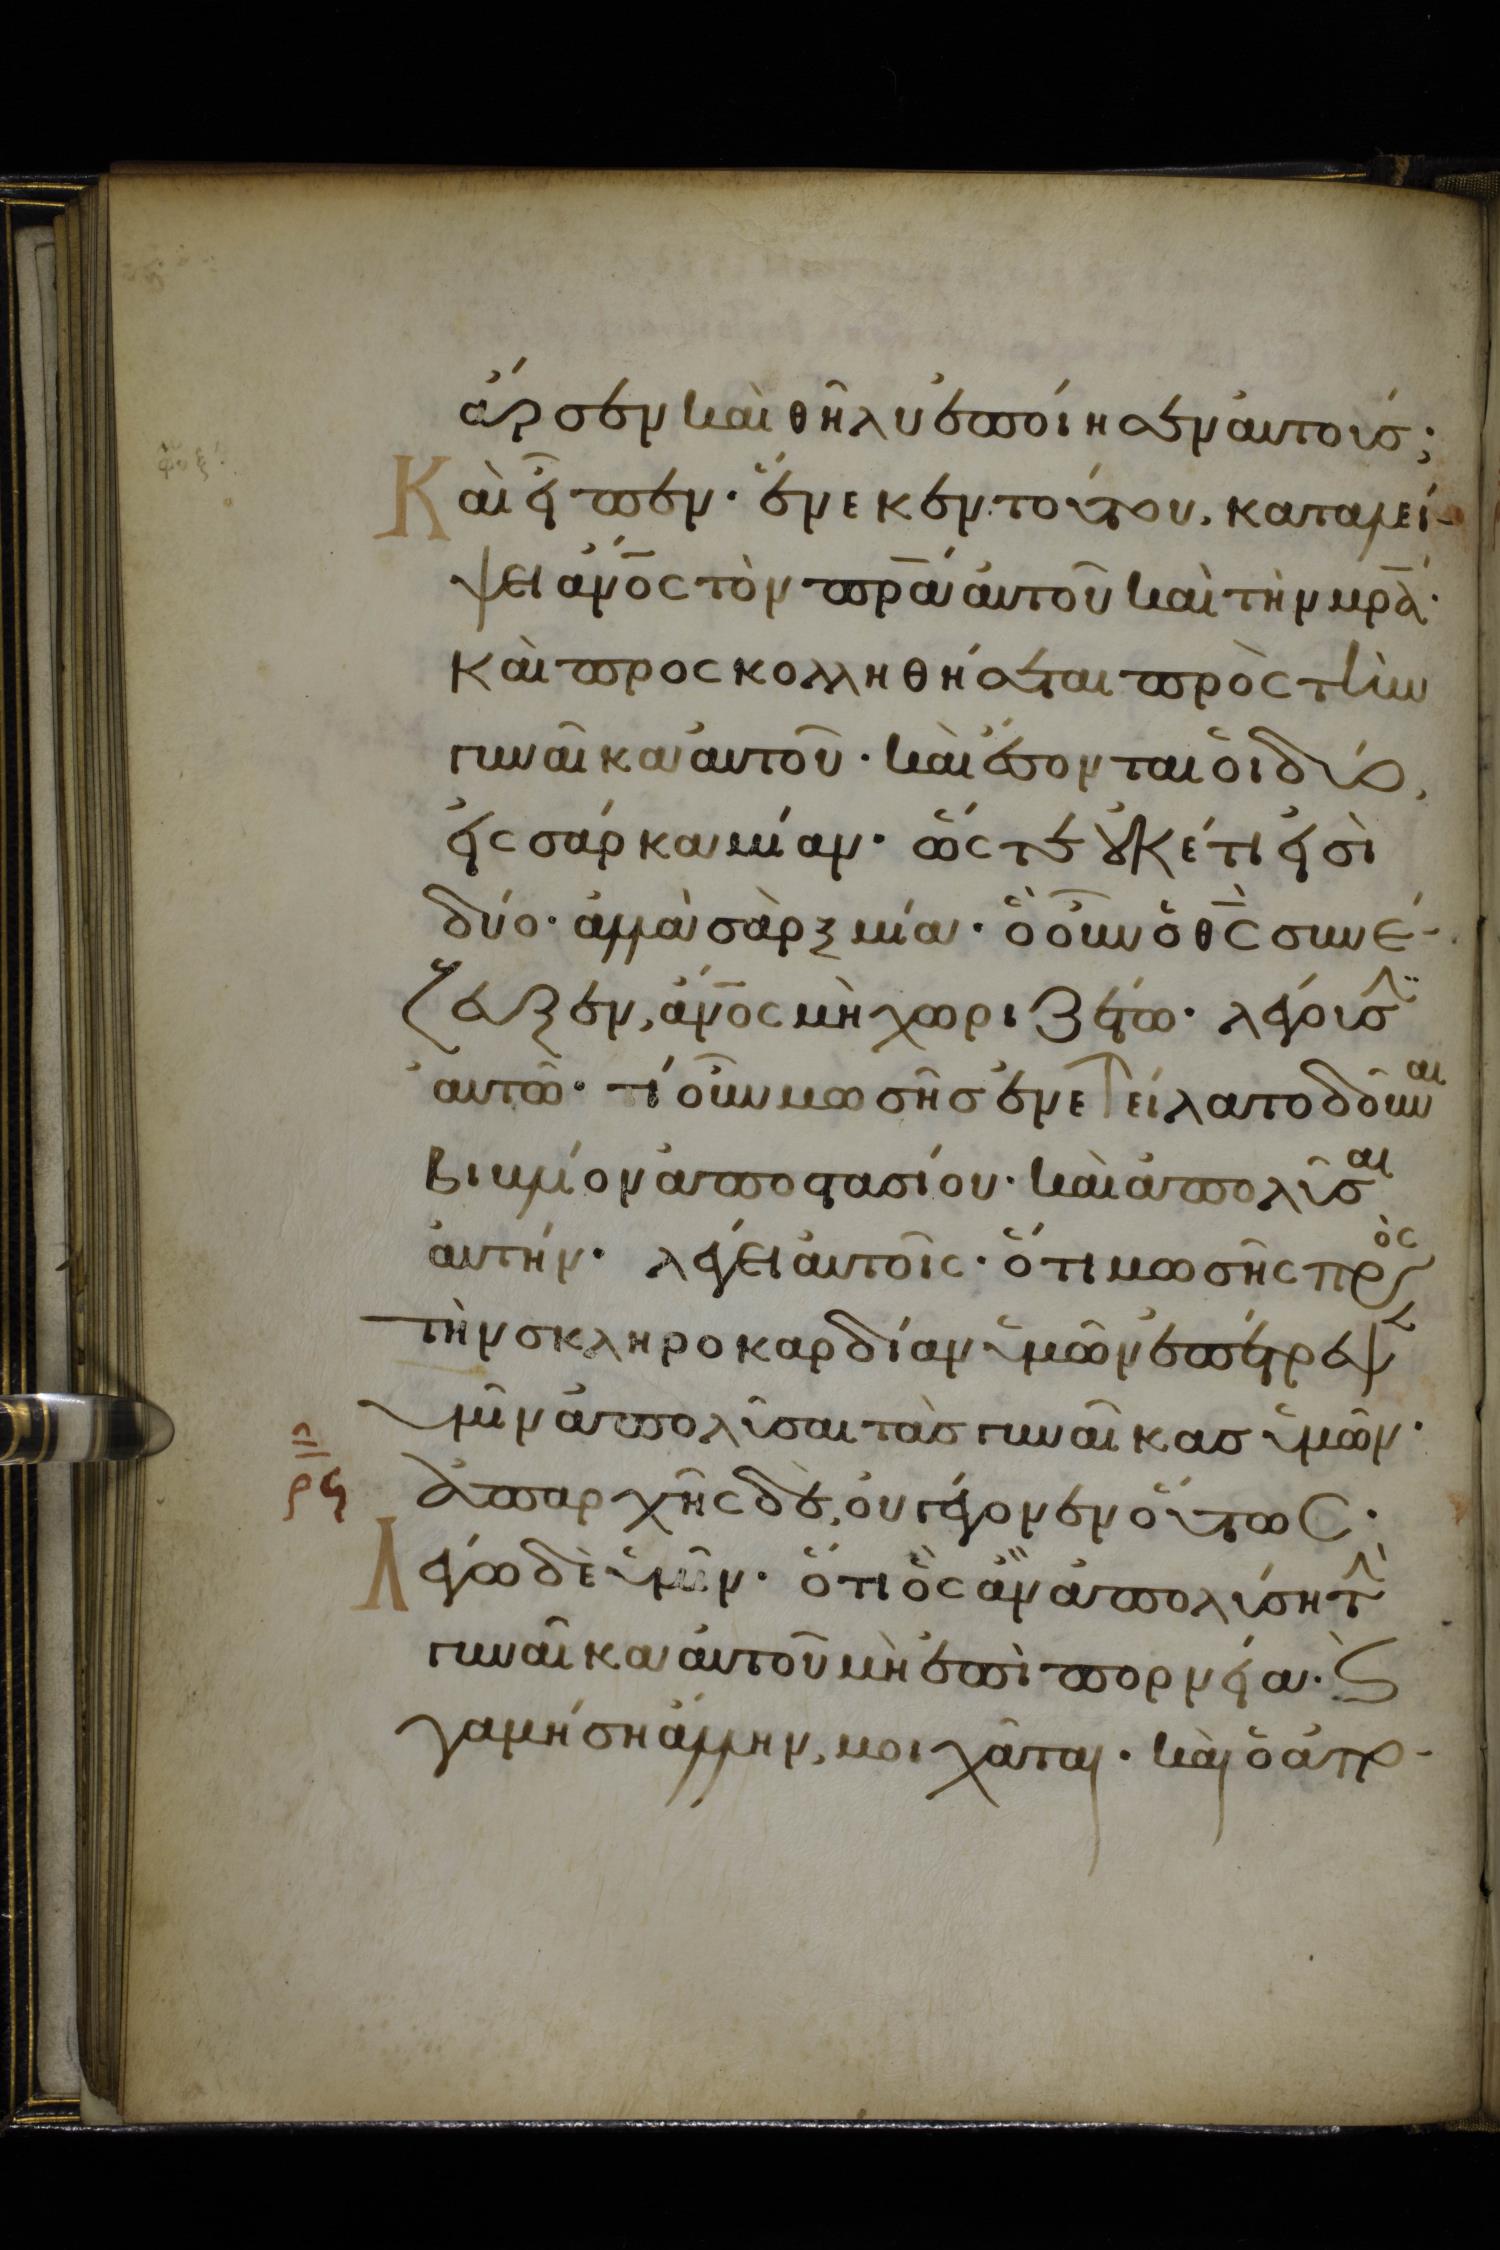 ἄρσεν καὶ θῆλυ ἐποίησεν αυτούσ;
Καὶ εἶπεν· ἕνεκεν τούτου, καταλεί-
ψει ἄν̅ο̅ς τὸν π̅ρ̅α̅ αὐτοῦ καὶ τὴν μ̅ρ̅α̅·
καὶ προσκολληθήσεται πρὸς τὴν
γυναῖκα αὐτοῦ· καὶ ἔσονται ὁι δύο,
εἰς σάρκα μίαν· ὥςτε ὀυκέτι εἰσὶ
δύο· ἀλλὰ σὰρξ μία· ὃ οὖν ὁ θ̅ς̅ συνέ-
ζευξεν, ἄν̅ο̅ς μὴ χωριζέτω· λέγουσ
αὐτῶ· τί οὖν μωσῆσ ἐνετείλατο δοῦναι
βιβλίον ἀποστασίου· καὶ ἀπολῦσαι
ἀυτήν· λέγει ἀυτοῖς· ὅτι μωσῆς πρὸς
τὴν σκληροκαρδίαν ὑμῶν ἐπέτρεψ
ὑμῖν ἀπολῦσαι τὰσ γυναῖκασ ὑμῶν·
ἀπαρχῆς δὲ, ὀυ γέγονεν ὅυτως·
Λέγω δὲ ὑμῖν· ὅτι ὃς ἂν ἀπολύσητ
γυναῖκα ἀυτοῦ μὴ ἐπὶ πορνεία· ϗ
γαμήση ἄλλην, μοιχᾶται· καὶ ὁ ἀπο-
ρϟ